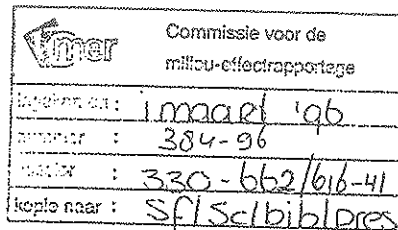 mer
Commissie voor de
milieu-effectrapportage
ingekomen : 1 maart '96
nummer : 384-96
dossier : 330-662/616-41
kopie naar : Sf/Sc/bib/pres